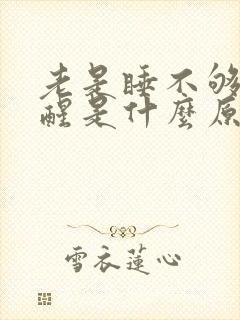 老是睡不够
醒是什麼原
雪衣蓮心